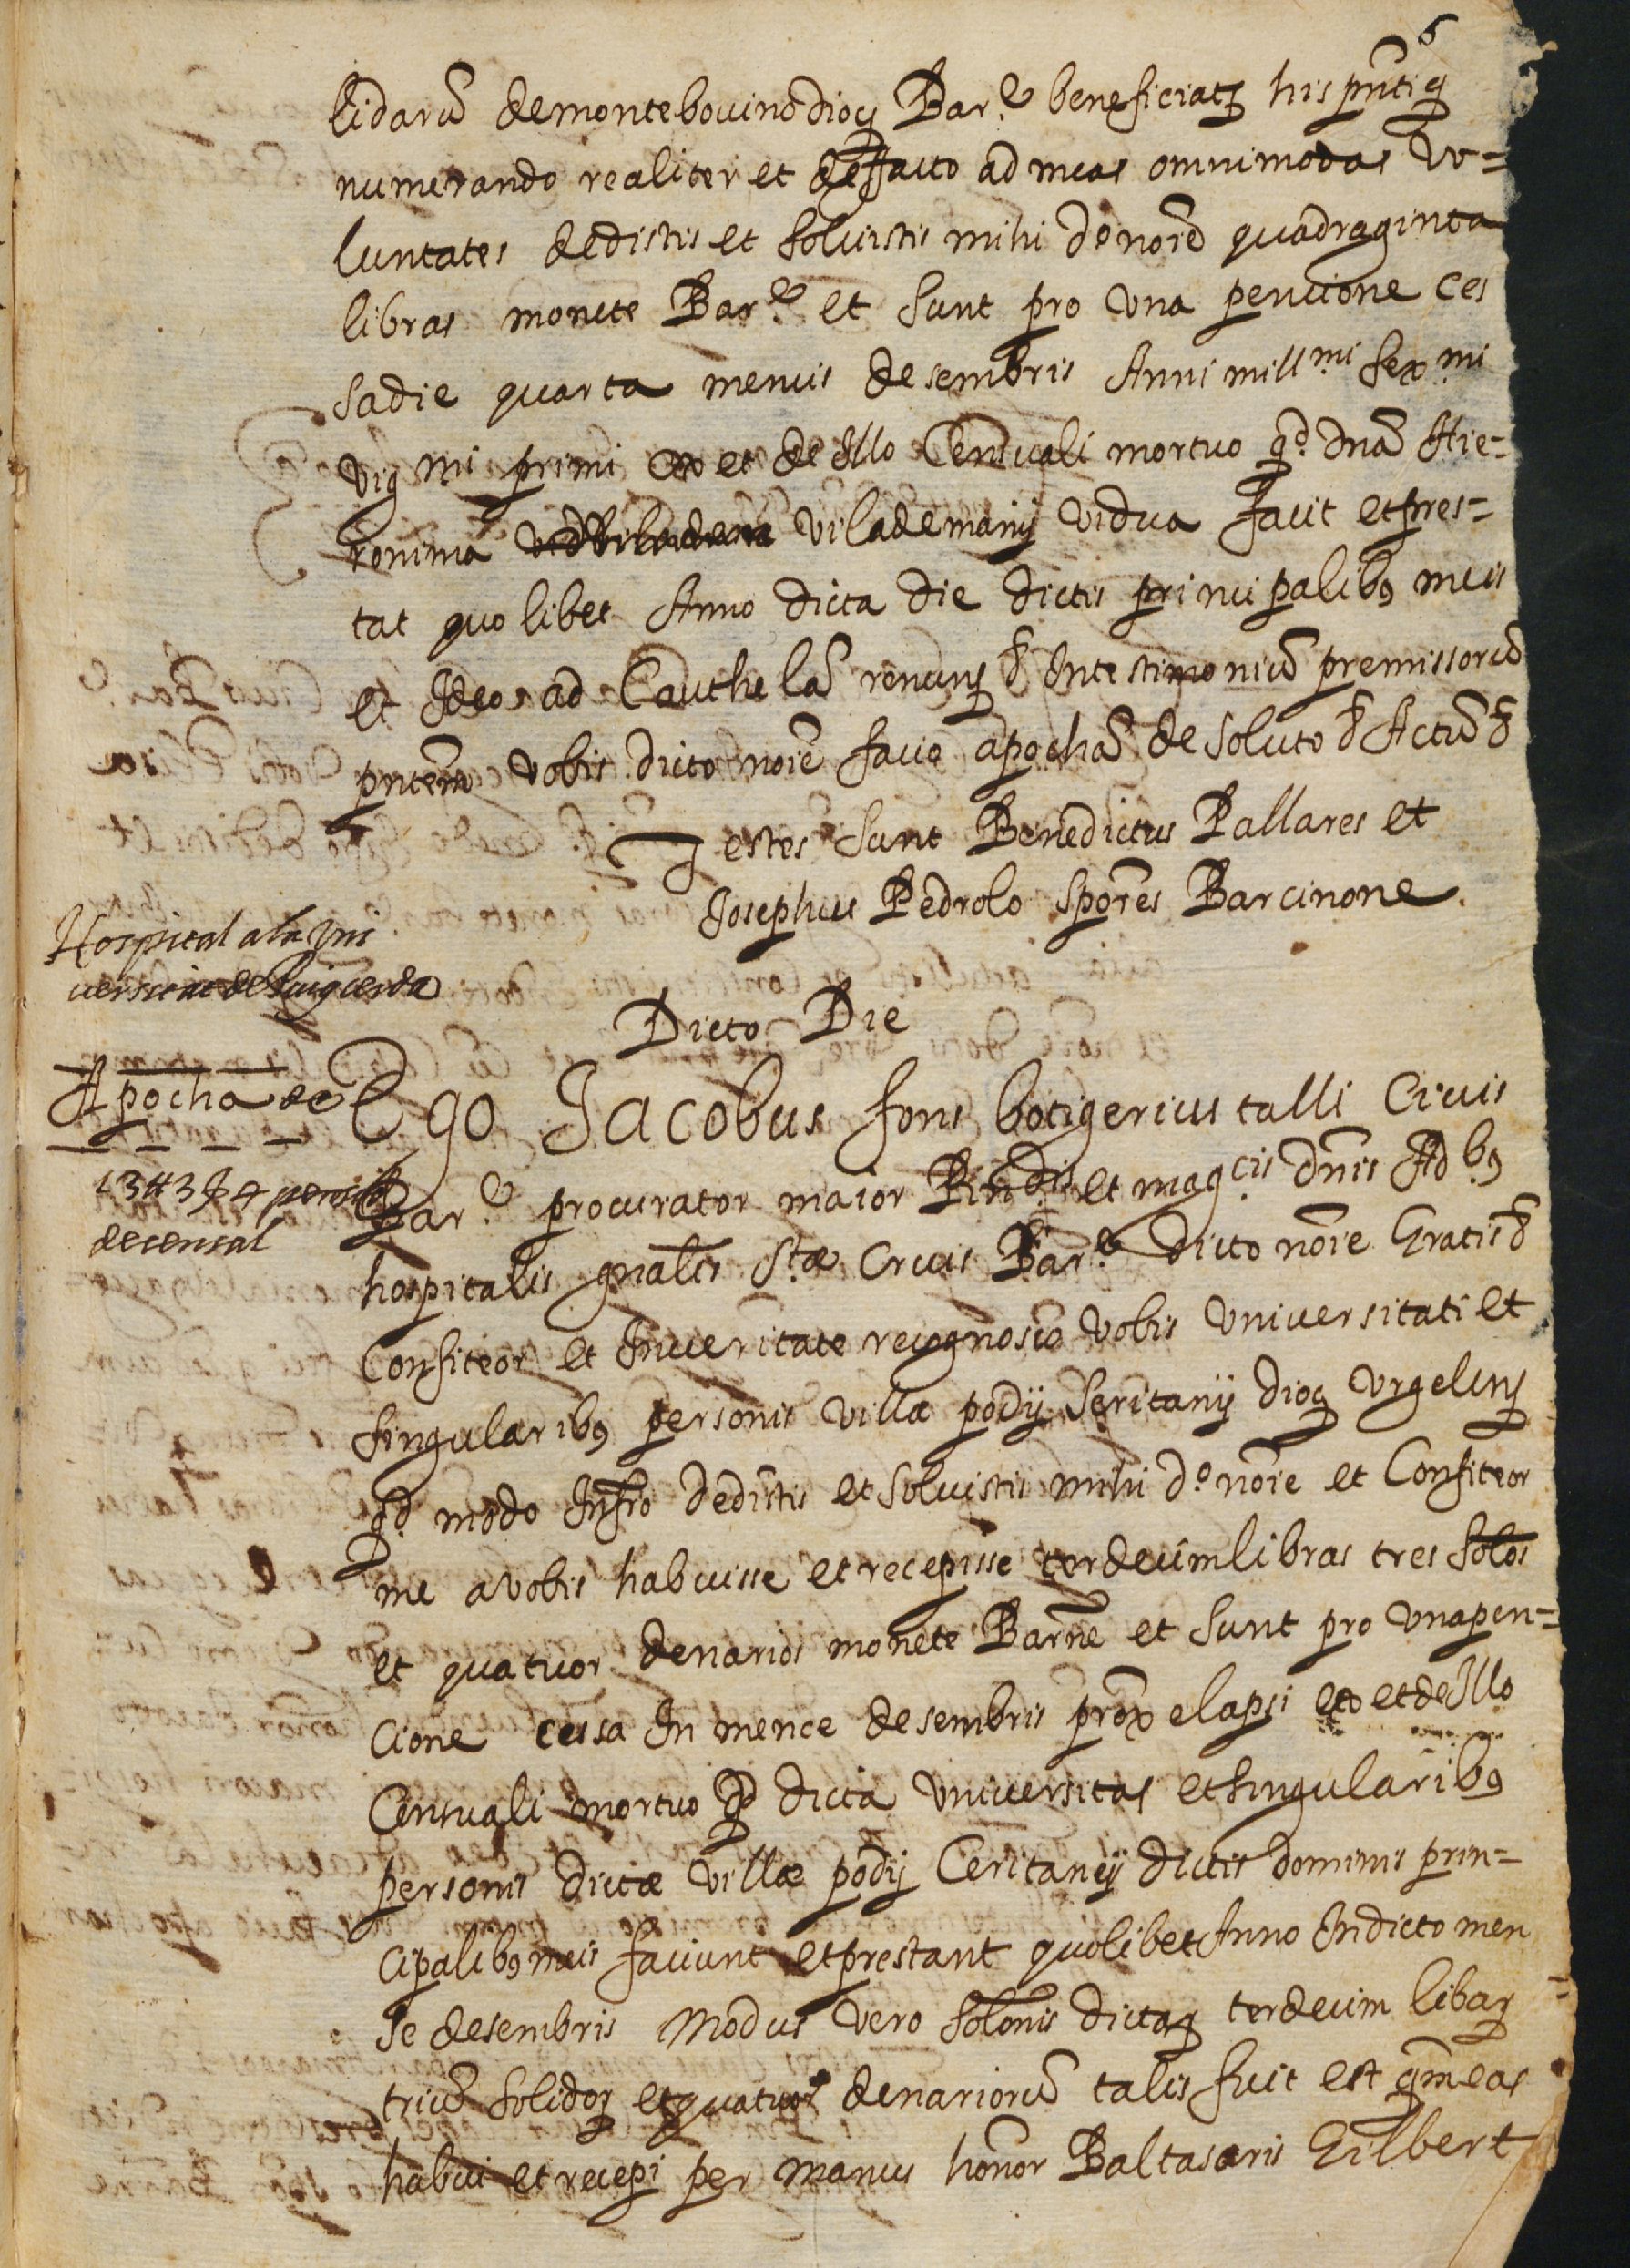 6
lidarũ de montebovino dioc̨ Bar.e beneficiatꝫ his pñtiq
numerando realiter et de facto ad meas omnimodas vo=
luntates dedistis et solvistis mihi do noiẽ quadraginta
libras monete Bar.e et sunt pro una pencione ces
sa die quarta mencis desembris Anni mill.mi sex.mi
vig mi primi ex et de Illo Censuali mortuo qd. dnã Hie=
ronima vilademany vidua facit et pres=
tat quolibet Anno dicta die dictis principalibꝰ meis
et Ideo ad Cauthelã renuns ꝭ In testimoniũ premissorũ
pñtem vobis dicto noiẽ facio apochã de soluto ꝭ Actũ ꝭ
Testes sunt Benedictus Pallares et
Josephus Pedrolo spores Barcinone.
Hospital a la Vni
versitat de Puigcerda
Dicto Die
Apocha de
13 ₶ 3 ß 4 pensio
de censal
Ego Jacobus fons botigerius talli Civis
Bar.e procurator maior Rndis et magcis dñis Adbꝰ
hospitalis gñalis Stæ Crucis Bar.e dicto nõie Gratis ꝭ
Confiteor et In veritate recognosco vobis universitati et
singularibꝰ personis villæ podij Seritanij dioc̨ Vrgelens
qd. modo Infrõ dedistis et solvistis mihi do. nõie et Confiteor
me a vobis habuisse et recepisse terdecim libras tres solos
et quatuor denarios monete Barñe et sunt pro una pen=
cione cessa In mence desembris prõx elapsi ex et de Illo
Censuali mortuo qd dicta universitas et singularibꝰ
personis dictæ villæ podij Ceritanij dictis dominis prin=
cipalibꝰ meis faciunt et prestant quolibet Anno In dicto men
se desembris Modus vero solonis dictaꝝ terdecim libaꝝ
triũ solidoꝝ et quatuor denariorũ talis fuit est qm̃ eas
habui et recepi per manus honor Baltasaris Gilbert